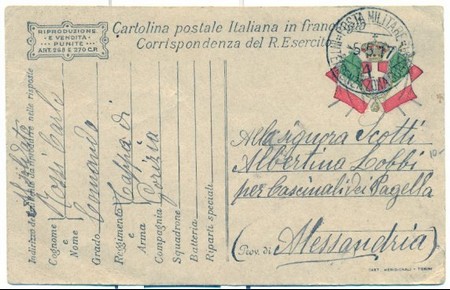 RIPRODUZIONE
E VENDITA
PUNITE
ART. 268 E 270 C.P.
Cartolina postale Italiana in franc
Corrispondenza del R. Esercito
POSTA MILITARE
5.5.17
Alla signora Scotti
Albertina Zobbi
per Cascinali dei Pagella
(Prov. di Alessandria)
10-
Indirizzo del mittente da riprodurre nelle risposte
Cognome e Nome Rossi Carlo
Grado Comando
Reggimento e Arma Tappa di
Compagnia Gorizia
Squadrone
Batteria
Riparti speciali